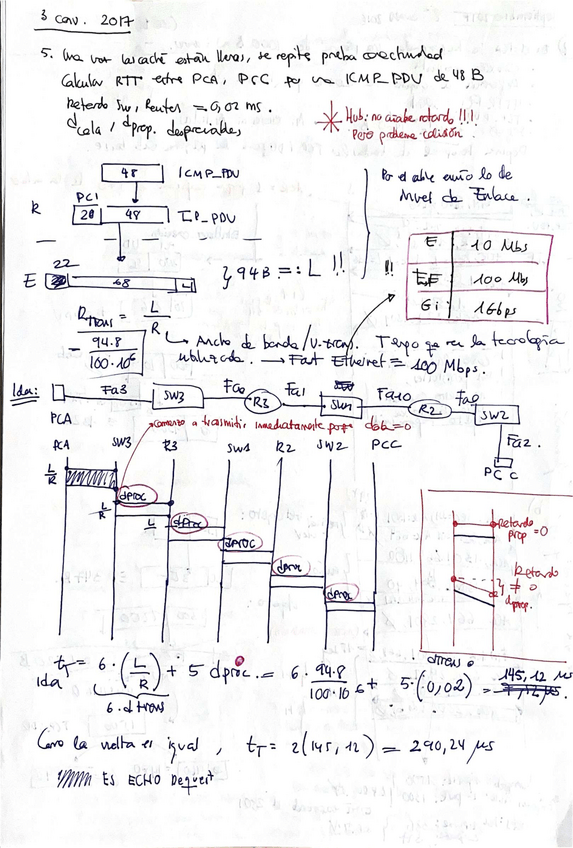 3 conv. 2017
5. Una vez las caché están llenas, se repite prueba conectividad
Calcular RTT entre PCA, PCC por una ICMP_PDU de 48 B
Retardo Sw, Routers = 0,02 ms.
dcola, dprop. despreciables
Hub: no añade retardo !!!
Pero problema colisión.
48 ICMP_PDU
PCI
R 20 48 IP_PDU
Por el cable envío lo de
Nivel de Enlace.
22
E 68 4 } 94B =: L !!
!!
E 10 Mbs
EF 100 Mbs
Gi 1Gbps
Rtrans = L/R
= 94.8/100·10⁶
Ancho de banda/V.trans. Tengo que ver la tecnología
utilizada. → Fast Ethernet = 100 Mbps.
Ida:
PCA Fa3 SW3 Fa0 R3 Fa1 SW1 Fa10 R2 Fa0 SW2
Fa2.
PCC
comienzo a trasmitir inmediatamente porque dcola=0
PCA SW3 R3 SW1 R2 SW2 PCC
L/R dproc
L/R dproc
L dproc
dproc
dproc
Retardo
prop=0
Retardo
≠ 0
dprop.
dtrans
tT ida = 6·(L/R) + 5 dproc. = 6· 94.8/100·10⁶ + 5·(0,02) = 145,12 μs.
6·dtrans
Como la vuelta es igual, tT = 2(145,12) = 290,24 μs
Es ECHO Request